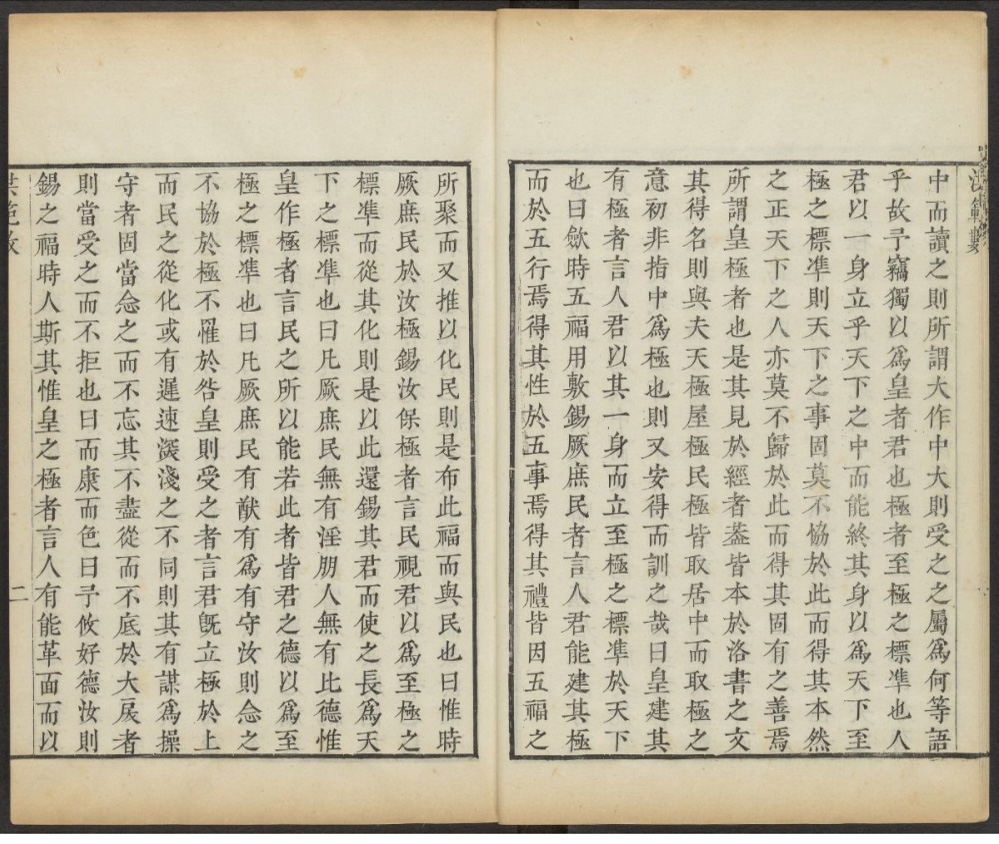 洪範數
中而讀之則所謂大作中大則受之之屬爲何等語
乎故予竊獨以爲皇者君也極者至極之標準也人
君以一身立乎天下之中而能終其身以爲天下至
極之標準則天下之事固莫不協於此而得其本然
之正天下之人亦莫不歸於此而得其固有之善焉
所謂皇極者也是其見於經者葢皆本於洛書之文
其得名則與夫天極屋極民極皆取居中而取極之
意初非指中爲極也則又安得而訓之哉曰皇建其
有極者言人君以其一身而立至極之標準於天下
也曰歛時五福用敷錫厥庶民者言人君能建其極
而於五行焉得其性於五事焉得其禮皆因五福之
所聚而又推以化民則是布此福而與民也曰惟時
厥庶民於汝極錫汝保極者言民視君以爲至極之
標準而從其化則是以此還錫其君而使之長爲天
下之標準也曰凡厥庶民無有淫朋人無有比德惟
皇作極者言民之所以能若此者皆君之德以爲至
極之標準也曰凡厥庶民有猷有爲有守汝則念之
不協於極不罹於咎皇則受之者言君旣立極於上
而民之從化或有遲速深淺之不同則其有謀爲操
守者固當念之而不忘其不盡從而不底於大戾者
則當受之而不拒也曰而康而色曰予攸好德汝則
錫之福時人斯其惟皇之極者言人有能革面而以
洪範數
二